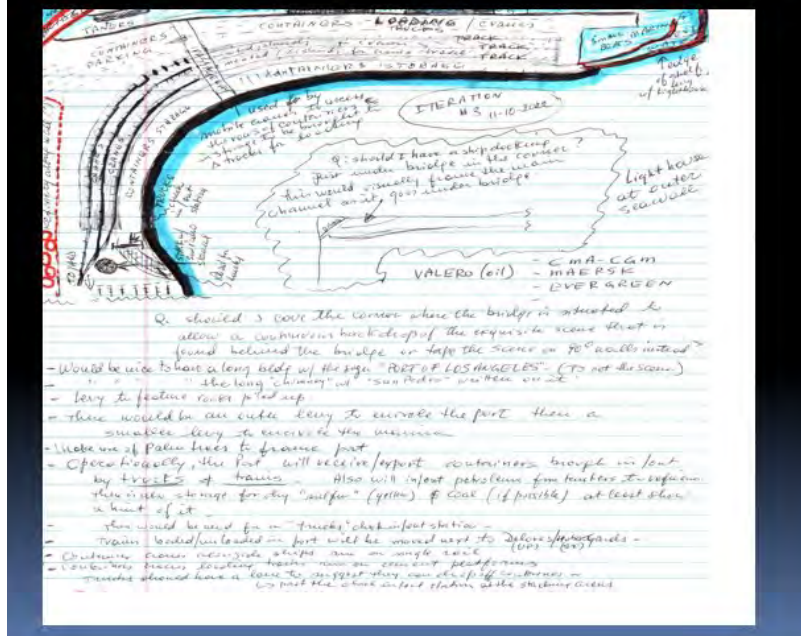 TANKS
CONTAINERS - LOADING / CRANES
TRUCKS
CONTAINERS
PARKING
TRACK
TRACK
TRACK
CONTAINERS STORAGE
SMALL MARINA
BOATS
edge
of shelf,
w/ lighthouse
CONTAINERS STORAGE
CRANES
used for by
mobile cranes to access
the rows of containers
storage to be brought to
trucks for loading
ITERATION
#3 11-10-2022
Q: should I have a ship docking ?
just under bridge in the corner
This would visually frame the main
channel as it goes under bridge
Light house
at outer
seawall
VALERO (oil)
- CMA-CGM
- MAERSK
- EVERGREEN
Q. should I cove the corner where the bridge is situated to
allow a continuous backdrop of the exquisite scene that is
found behind the bridge or tape the scene on 90° walls instead?
- Would be nice to have a long bldg w/ the sign "PORT OF LOS ANGELES" (TS not the scene)
- " " " the long "chimney" w/ "San Pedro" written on it
- Levy to feature rocks piled up
- There would be an outer levy to encircle the port then a
smaller levy to encircle the marina
- Make use of Palm trees to frame port
- Operationally, the Port will receive/export containers brough in/out
by trucks & trains. Also will import petroleum from tankers to refineries
there is also storage for dry "sulfur" (yellow) & coal (if possible) at least show
a hint of it
- There would be need for a "trucks" check in/out station -
- Trains loaded/unloaded in port will be moved next to Dolores/ Yards -
(UP)
- Container cranes alongside ships run on single rail
- Containers cranes loading trains run on cement platforms
Trucks should have a lane to suggest they can drop off containers
past the check in/out station at the stacking areas